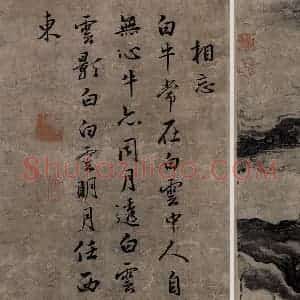 相忘
白牛常在白雲中人自
無心牛亦同月透白雲
雲影白白雲明月任西
東
Shufaziliao.com